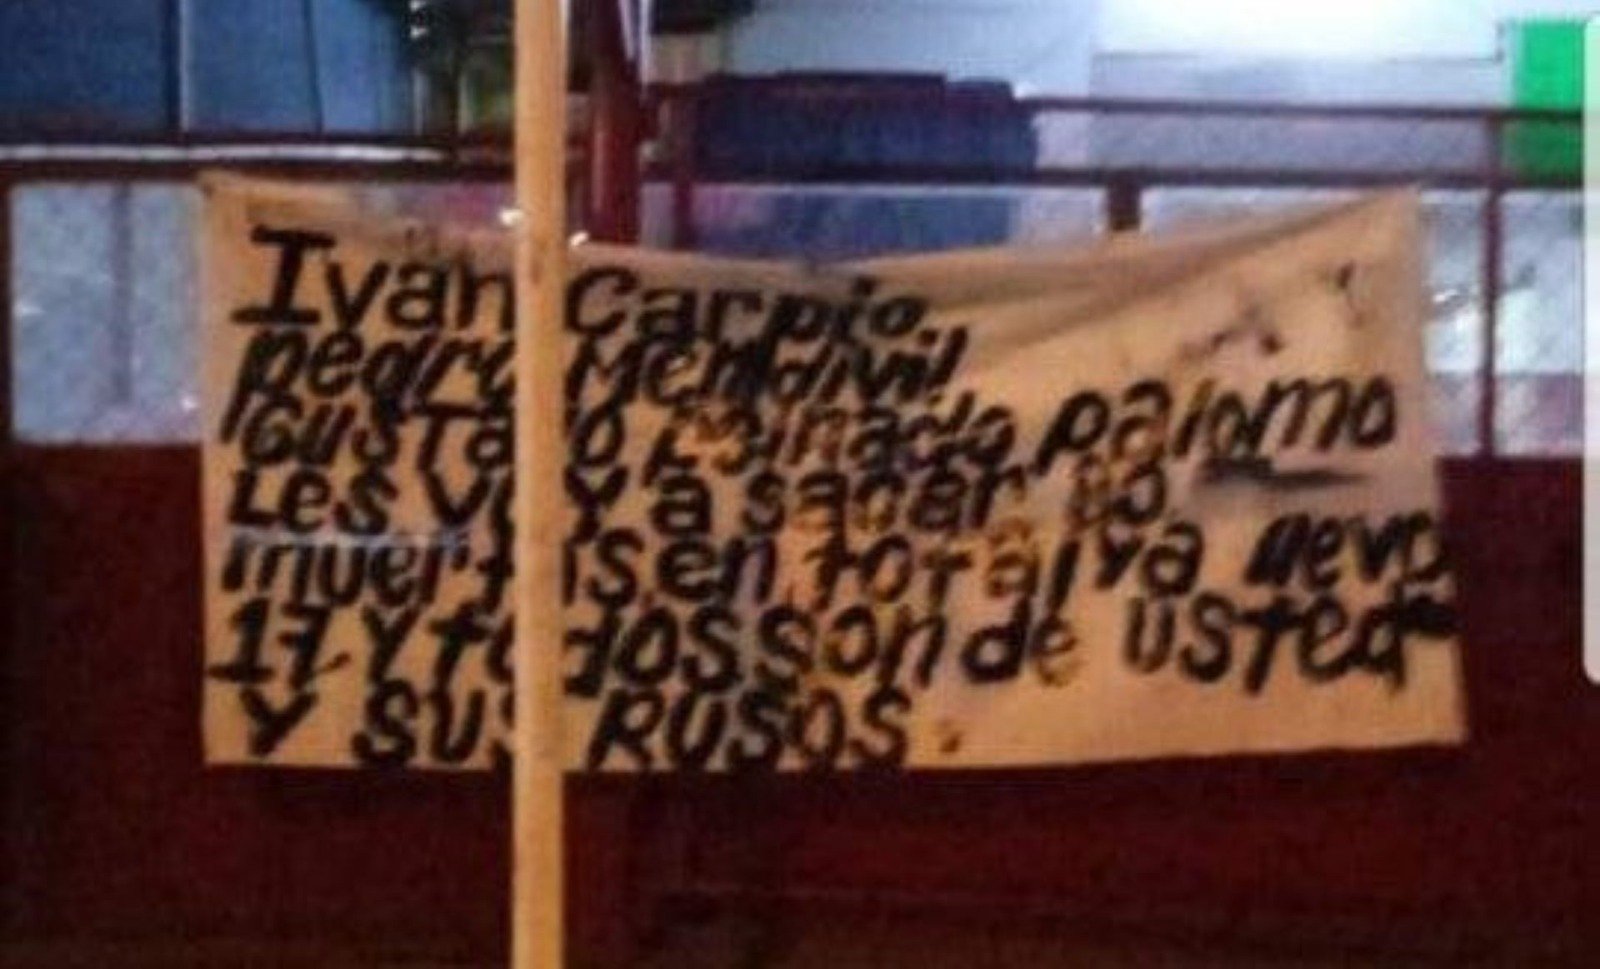 Ivan Carpio
pedro Mendivil
Gustavo Reinado palomo
Les voy a sacar
muertos en total va nevo
17 y todos son de usted
y sus RUSOS.